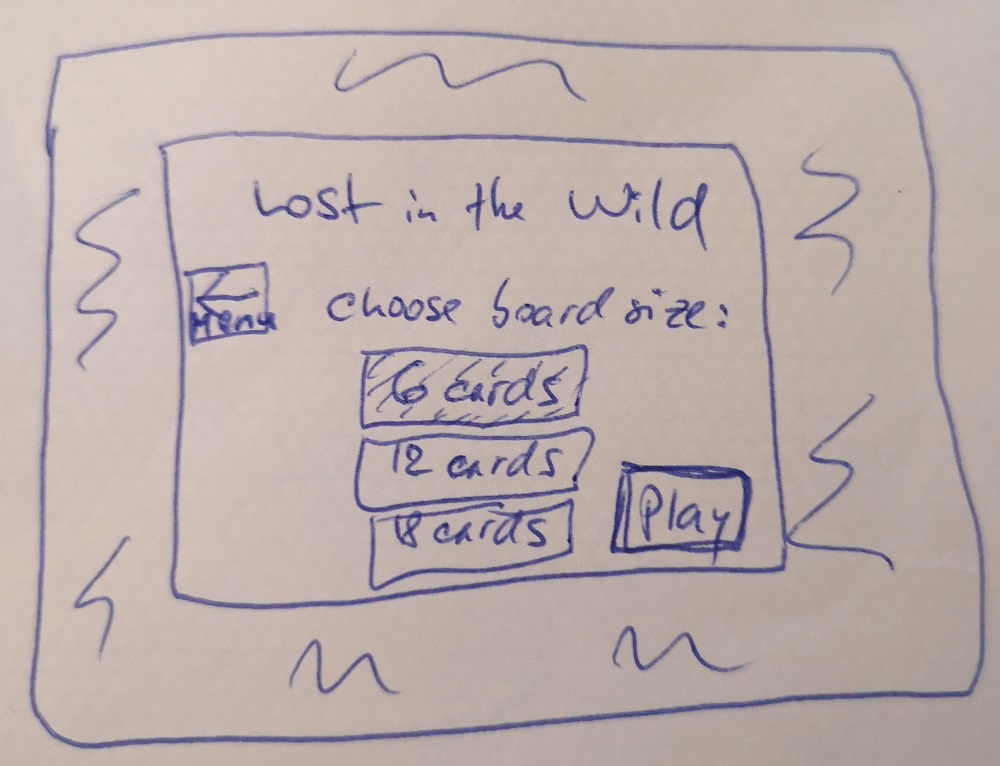 Lost in the Wild
Menu
choose board size:
6 cards
12 cards
18 cards
Play